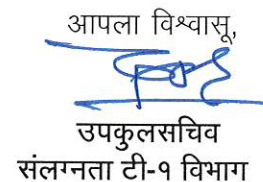 आपला विश्वासू,
उपकुलसचिव
संलग्नता टी-१ विभाग